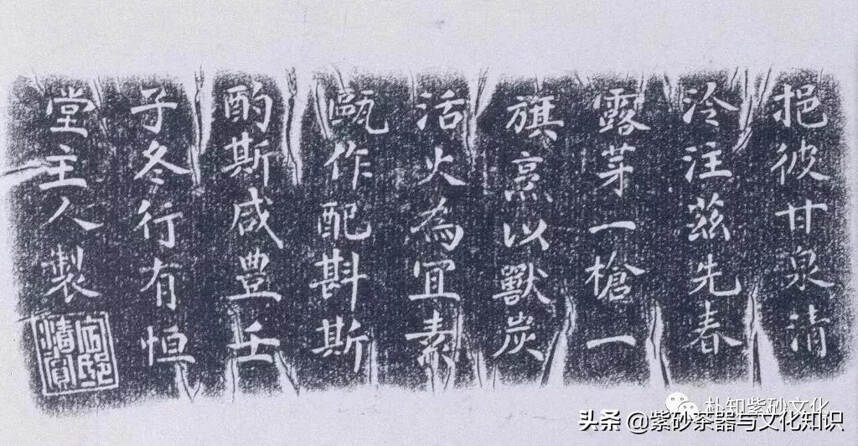 挹彼甘泉清
泠注茲先春
露芽一槍一
旗烹以獸炭
活火為宜素
甌作配斟斯
酌斯咸豊壬
子冬行有恒
堂主人製
定邸清賞
朴知紫砂文化
头条 @紫砂茶器与文化知识